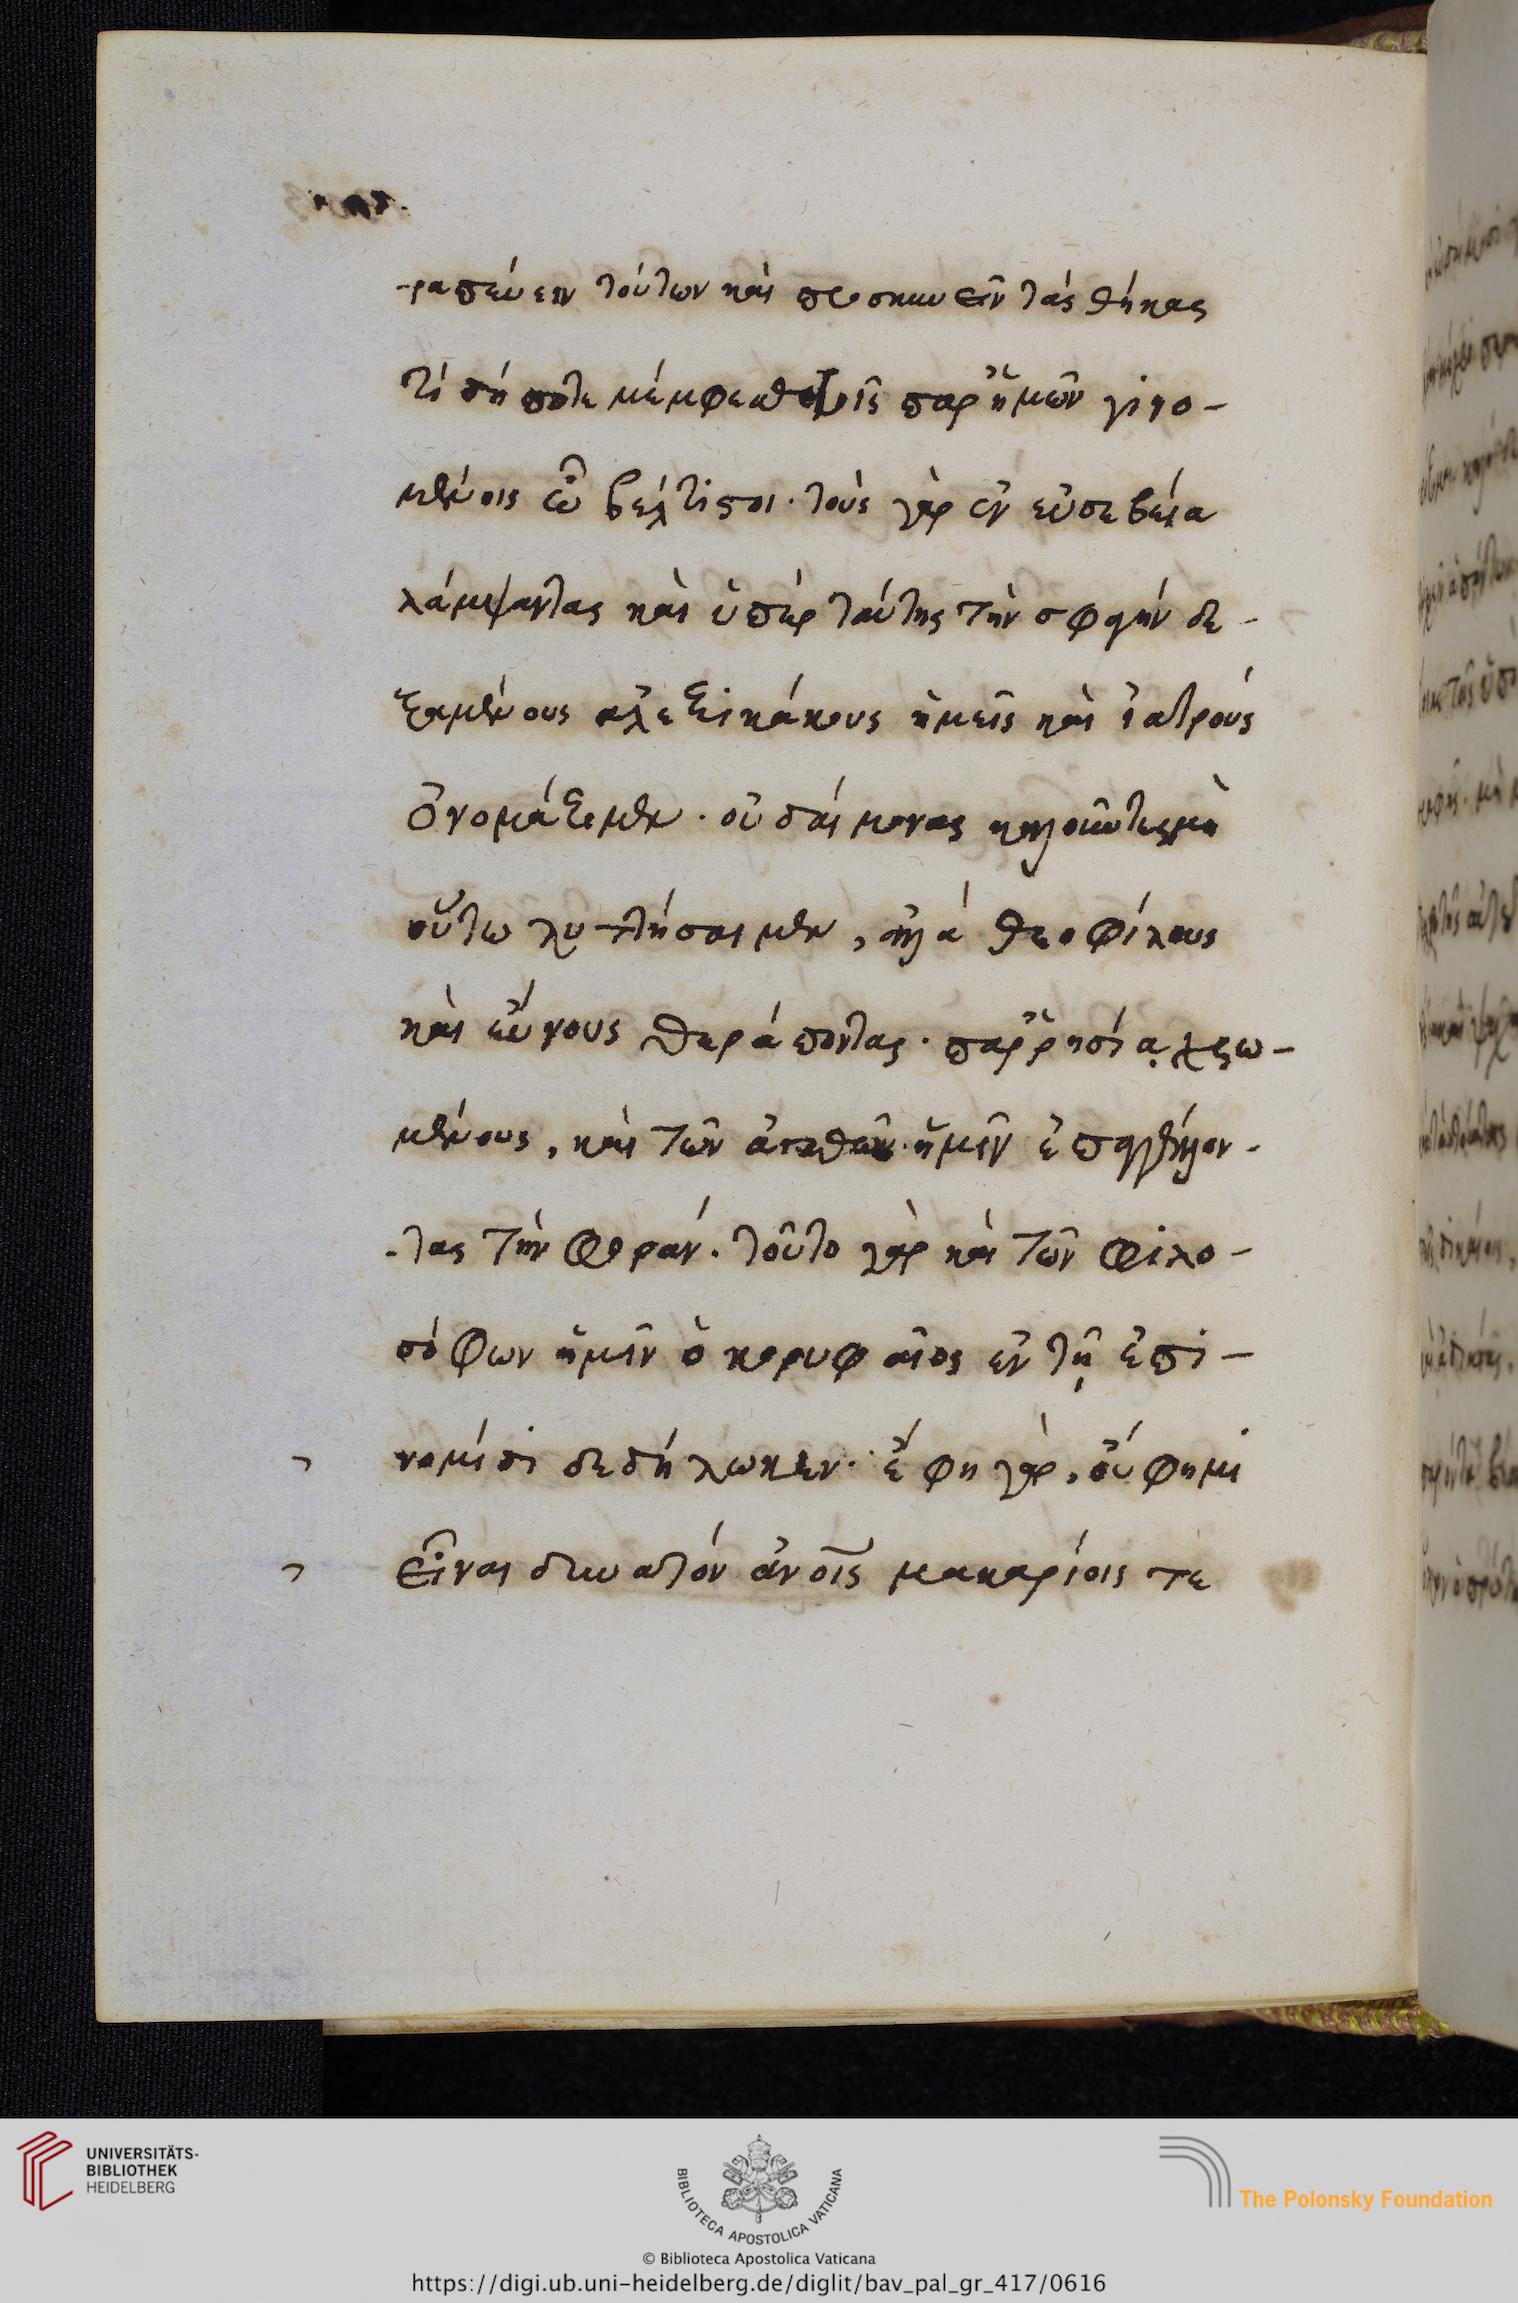 -ραπεύειν τούτων καὶ προσκυνεῖν τὰς θήκας
τί δή ποτε μέμφεσθε τοῖς παρ' ἡμῶν γινο-
μένοις ὦ βέλτιστοι· τοὺς γὰρ ἐν εὐσεβεία
λάμψαντας καὶ ὑπὲρ ταύτης τὴν σφαγὴν δε-
ξαμένους ἀλεξικάκους ἡμεῖς καὶ ἰατροὺς
ὀνομάζομεν. οὐ δαίμονας καλοῦντες μὴ
οὕτω λυττήσαιμεν, ἀλλὰ θεοφίλους
καὶ εὔνους θεράποντας. παρρησίᾳ χρω-
μένους, καὶ τῶν ἀγαθῶν ἡμῖν ἐπαγγέλλον-
-τας τὴν φοράν. τοῦτο γὰρ καὶ τῶν φιλο-
σόφων ἡμῖν ὁ κορυφαῖος ἐν τῇ ἐπι-
νομίδι δεδήλωκεν. ἔφη γὰρ, οὔ φημι
εἶναι δυνατὸν ἀνοῖς μακαρίοις τε
UNIVERSITÄTS-
BIBLIOTHEK
HEIDELBERG
BIBLIOTECA APOSTOLICA VATICANA
The Polonsky Foundation
© Biblioteca Apostolica Vaticana
https://digi.ub.uni-heidelberg.de/diglit/bav_pal_gr_417/0616